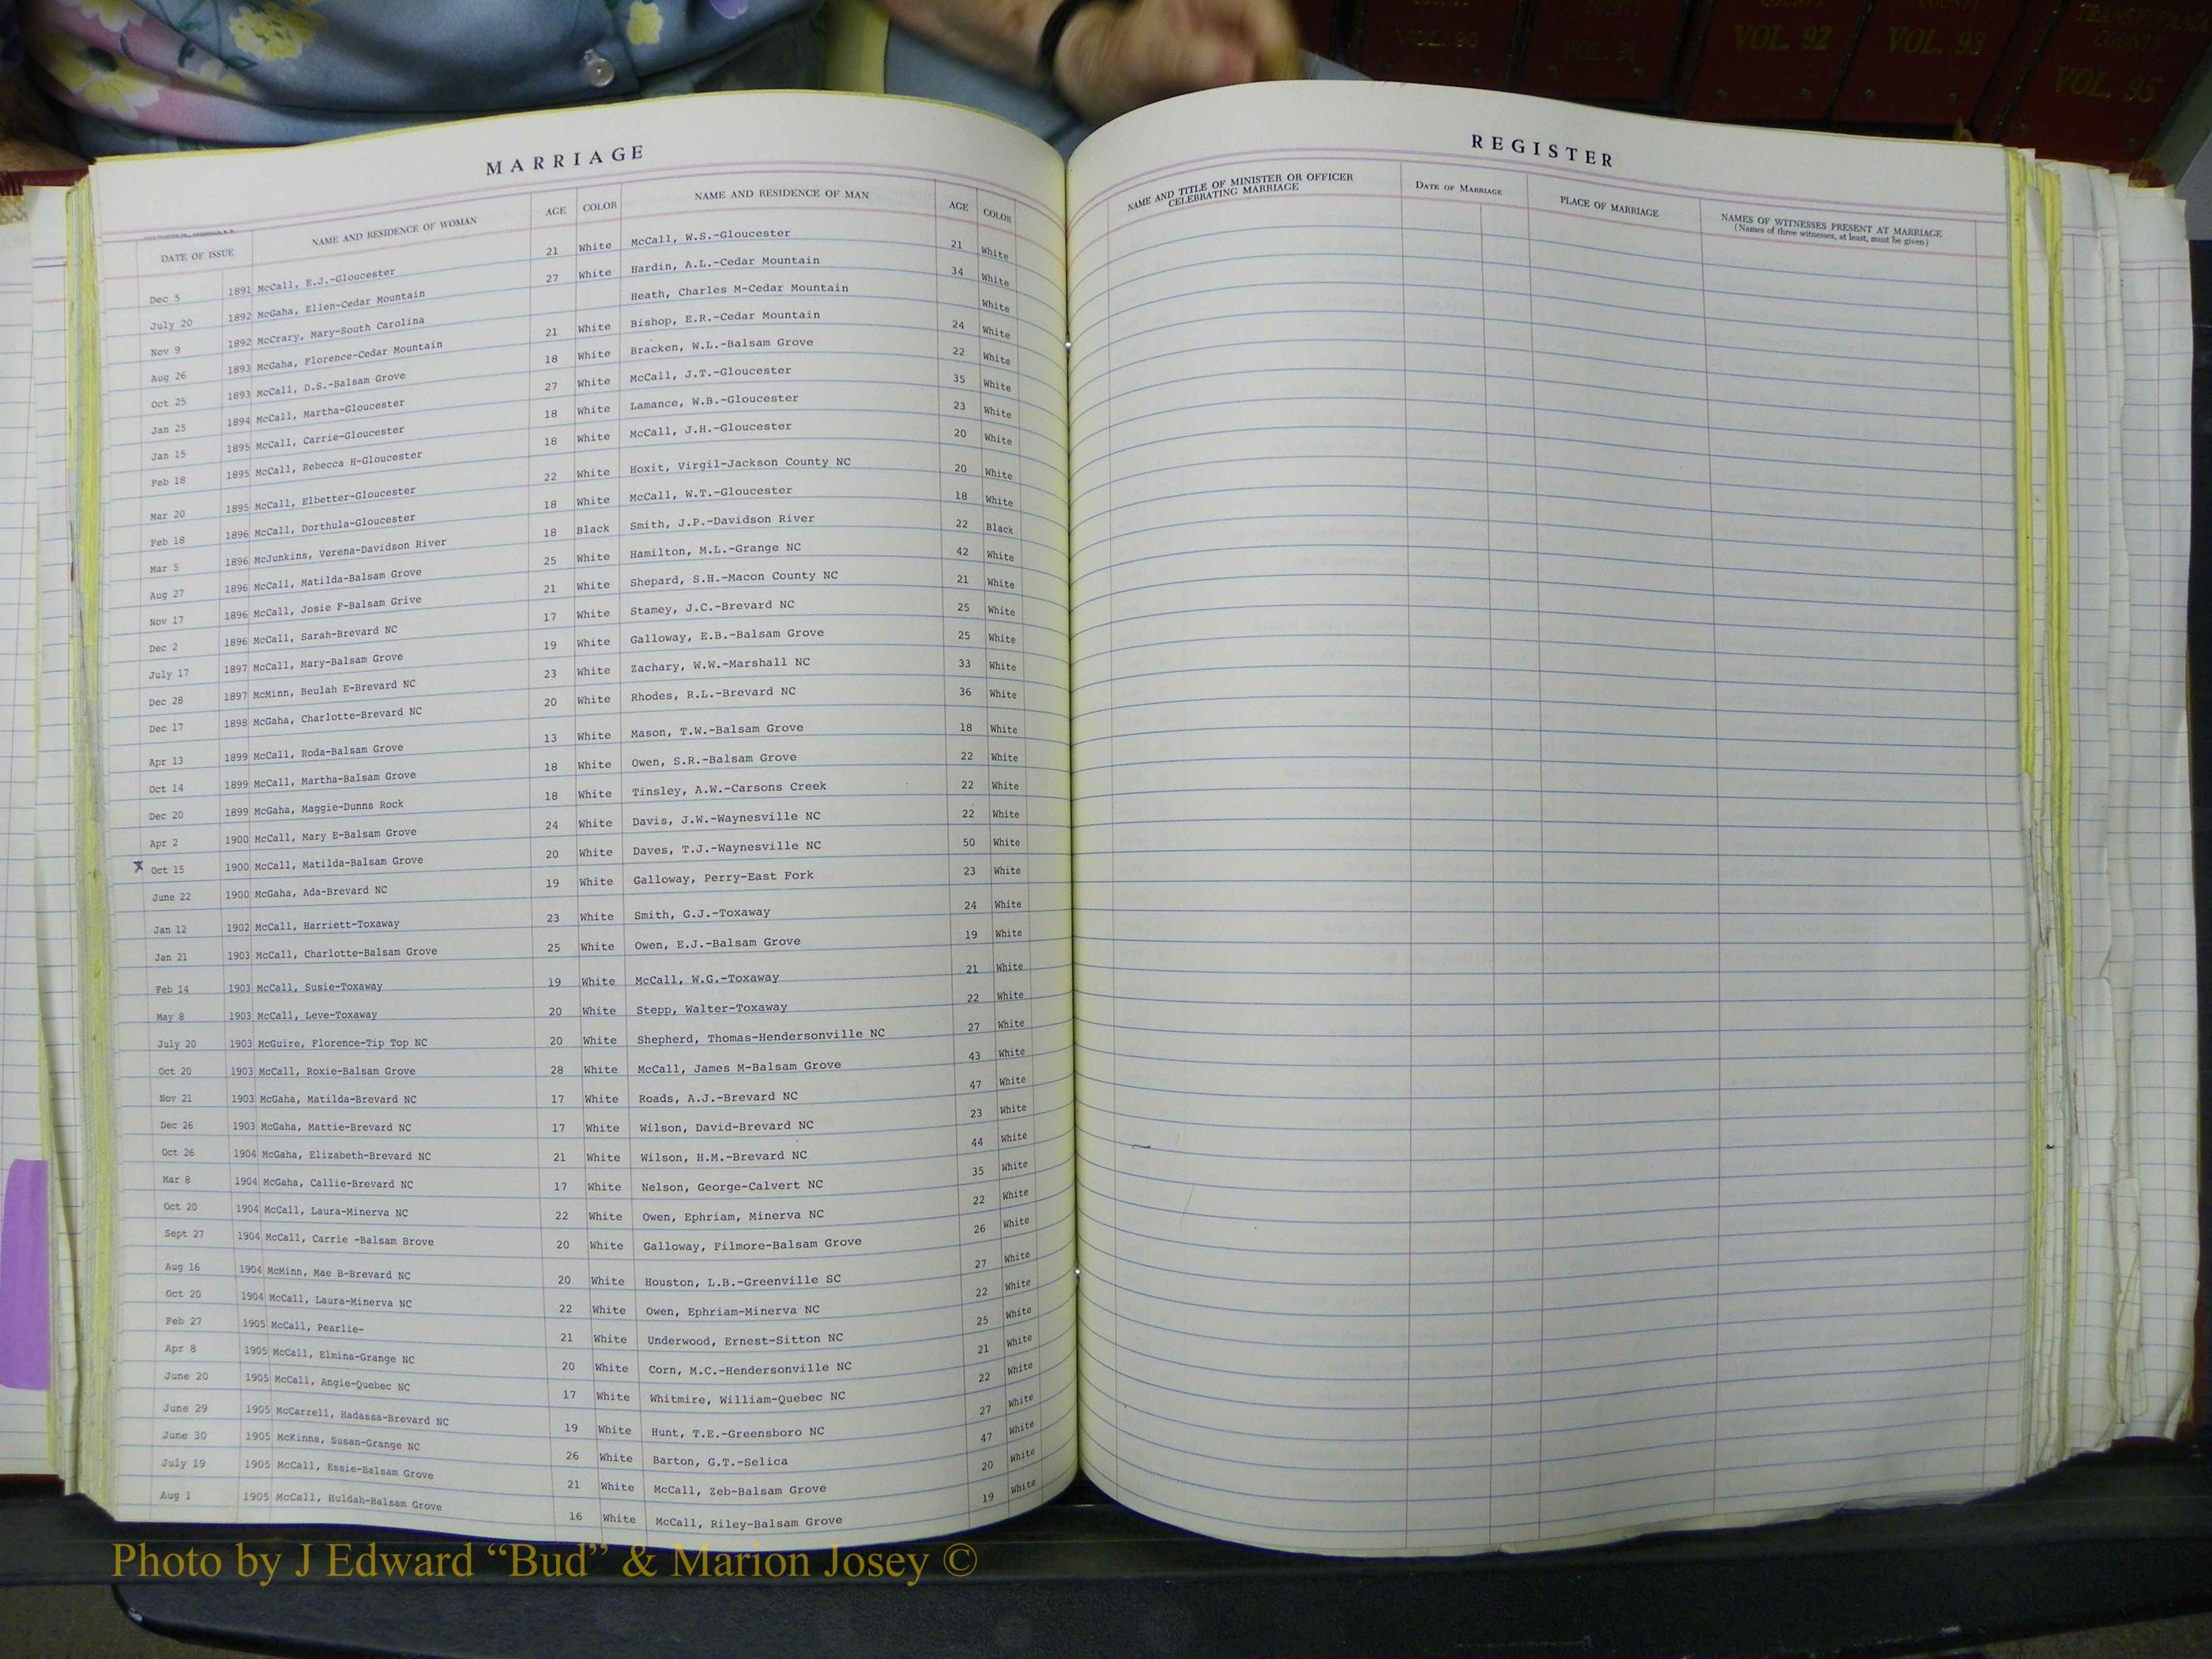 COUNTY
VOL. 90
COUNTY
VOL. 91
COUNTY
VOL. 92
COUNTY
VOL. 93
COUNTY
VOL. 95
MARRIAGE
DATE OF ISSUE NAME AND RESIDENCE OF WOMAN AGE COLOR NAME AND RESIDENCE OF MAN AGE COLOR
Dec 5 1891 McCall, E.J.-Gloucester 21 White McCall, W.S.-Gloucester 21 White
July 20 1892 McGaha, Ellen-Cedar Mountain 27 White Hardin, A.L.-Cedar Mountain 34 White
Nov 9 1892 McCrary, Mary-South Carolina Heath, Charles M-Cedar Mountain White
Aug 26 1893 McGaha, Florence-Cedar Mountain 21 White Bishop, E.R.-Cedar Mountain 24 White
Oct 25 1893 McCall, D.S.-Balsam Grove 18 White Bracken, W.L.-Balsam Grove 22 White
Jan 25 1894 McCall, Martha-Gloucester 27 White McCall, J.T.-Gloucester 35 White
Jan 15 1895 McCall, Carrie-Gloucester 18 White Lamance, W.B.-Gloucester 23 White
Feb 18 1895 McCall, Rebecca H-Gloucester 18 White McCall, J.H.-Gloucester 20 White
Mar 20 1895 McCall, Elbetter-Gloucester 22 White Hoxit, Virgil-Jackson County NC 20 White
Feb 18 1896 McCall, Dorthula-Gloucester 18 White McCall, W.T.-Gloucester 18 White
Mar 5 1896 McJunkins, Verena-Davidson River 18 Black Smith, J.P.-Davidson River 22 Black
Aug 27 1896 McCall, Matilda-Balsam Grove 25 White Hamilton, M.L.-Grange NC 42 White
Nov 17 1896 McCall, Josie F-Balsam Grive 21 White Shepard, S.H.-Macon County NC 21 White
Dec 2 1896 McCall, Sarah-Brevard NC 17 White Stamey, J.C.-Brevard NC 25 White
July 17 1897 McCall, Mary-Balsam Grove 19 White Galloway, E.B.-Balsam Grove 25 White
Dec 28 1897 McMinn, Beulah E-Brevard NC 23 White Zachary, W.W.-Marshall NC 33 White
Dec 17 1898 McGaha, Charlotte-Brevard NC 20 White Rhodes, R.L.-Brevard NC 36 White
Apr 13 1899 McCall, Roda-Balsam Grove 13 White Mason, T.W.-Balsam Grove 18 White
Oct 14 1899 McCall, Martha-Balsam Grove 18 White Owen, S.R.-Balsam Grove 22 White
Dec 20 1899 McGaha, Maggie-Dunns Rock 18 White Tinsley, A.W.-Carsons Creek 22 White
Apr 2 1900 McCall, Mary E-Balsam Grove 24 White Davis, J.W.-Waynesville NC 22 White
X Oct 15 1900 McCall, Matilda-Balsam Grove 20 White Daves, T.J.-Waynesville NC 50 White
June 22 1900 McGaha, Ada-Brevard NC 19 White Galloway, Perry-East Fork 23 White
Jan 12 1902 McCall, Harriett-Toxaway 23 White Smith, G.J.-Toxaway 24 White
Jan 21 1903 McCall, Charlotte-Balsam Grove 25 White Owen, E.J.-Balsam Grove 19 White
Feb 14 1903 McCall, Susie-Toxaway 19 White McCall, W.G.-Toxaway 21 White
May 8 1903 McCall, Leve-Toxaway 20 White Stepp, Walter-Toxaway 22 White
July 20 1903 McGuire, Florence-Tip Top NC 20 White Shepherd, Thomas-Hendersonville NC 27 White
Oct 20 1903 McCall, Roxie-Balsam Grove 28 White McCall, James M-Balsam Grove 43 White
Nov 21 1903 McGaha, Matilda-Brevard NC 17 White Roads, A.J.-Brevard NC 47 White
Dec 26 1903 McGaha, Mattie-Brevard NC 17 White Wilson, David-Brevard NC 23 White
Oct 26 1904 McGaha, Elizabeth-Brevard NC 21 White Wilson, H.M.-Brevard NC 44 White
Mar 8 1904 McGaha, Callie-Brevard NC 17 White Nelson, George-Calvert NC 35 White
Oct 20 1904 McCall, Laura-Minerva NC 22 White Owen, Ephriam, Minerva NC 22 White
Sept 27 1904 McCall, Carrie -Balsam Brove 20 White Galloway, Filmore-Balsam Grove 26 White
Aug 16 1904 McMinn, Mae B-Brevard NC 20 White Houston, L.B.-Greenville SC 27 White
Oct 20 1904 McCall, Laura-Minerva NC 22 White Owen, Ephriam-Minerva NC 22 White
Feb 27 1905 McCall, Pearlie- 21 White Underwood, Ernest-Sitton NC 25 White
Apr 8 1905 McCall, Elmina-Grange NC 20 White Corn, M.C.-Hendersonville NC 21 White
June 20 1905 McCall, Angie-Quebec NC 17 White Whitmire, William-Quebec NC 22 White
June 29 1905 McCarrell, Hadassa-Brevard NC 19 White Hunt, T.E.-Greensboro NC 27 White
June 30 1905 McKinna, Susan-Grange NC 26 White Barton, G.T.-Selica 47 White
July 19 1905 McCall, Essie-Balsam Grove 21 White McCall, Zeb-Balsam Grove 20 White
Aug 1 1905 McCall, Huldah-Balsam Grove 16 White McCall, Riley-Balsam Grove 19 White
REGISTER
NAME AND TITLE OF MINISTER OR OFFICER CELEBRATING MARRIAGE
DATE OF MARRIAGE
PLACE OF MARRIAGE
NAMES OF WITNESSES PRESENT AT MARRIAGE
(Names of three witnesses, at least, must be given)
Photo by J Edward “Bud” & Marion Josey ©